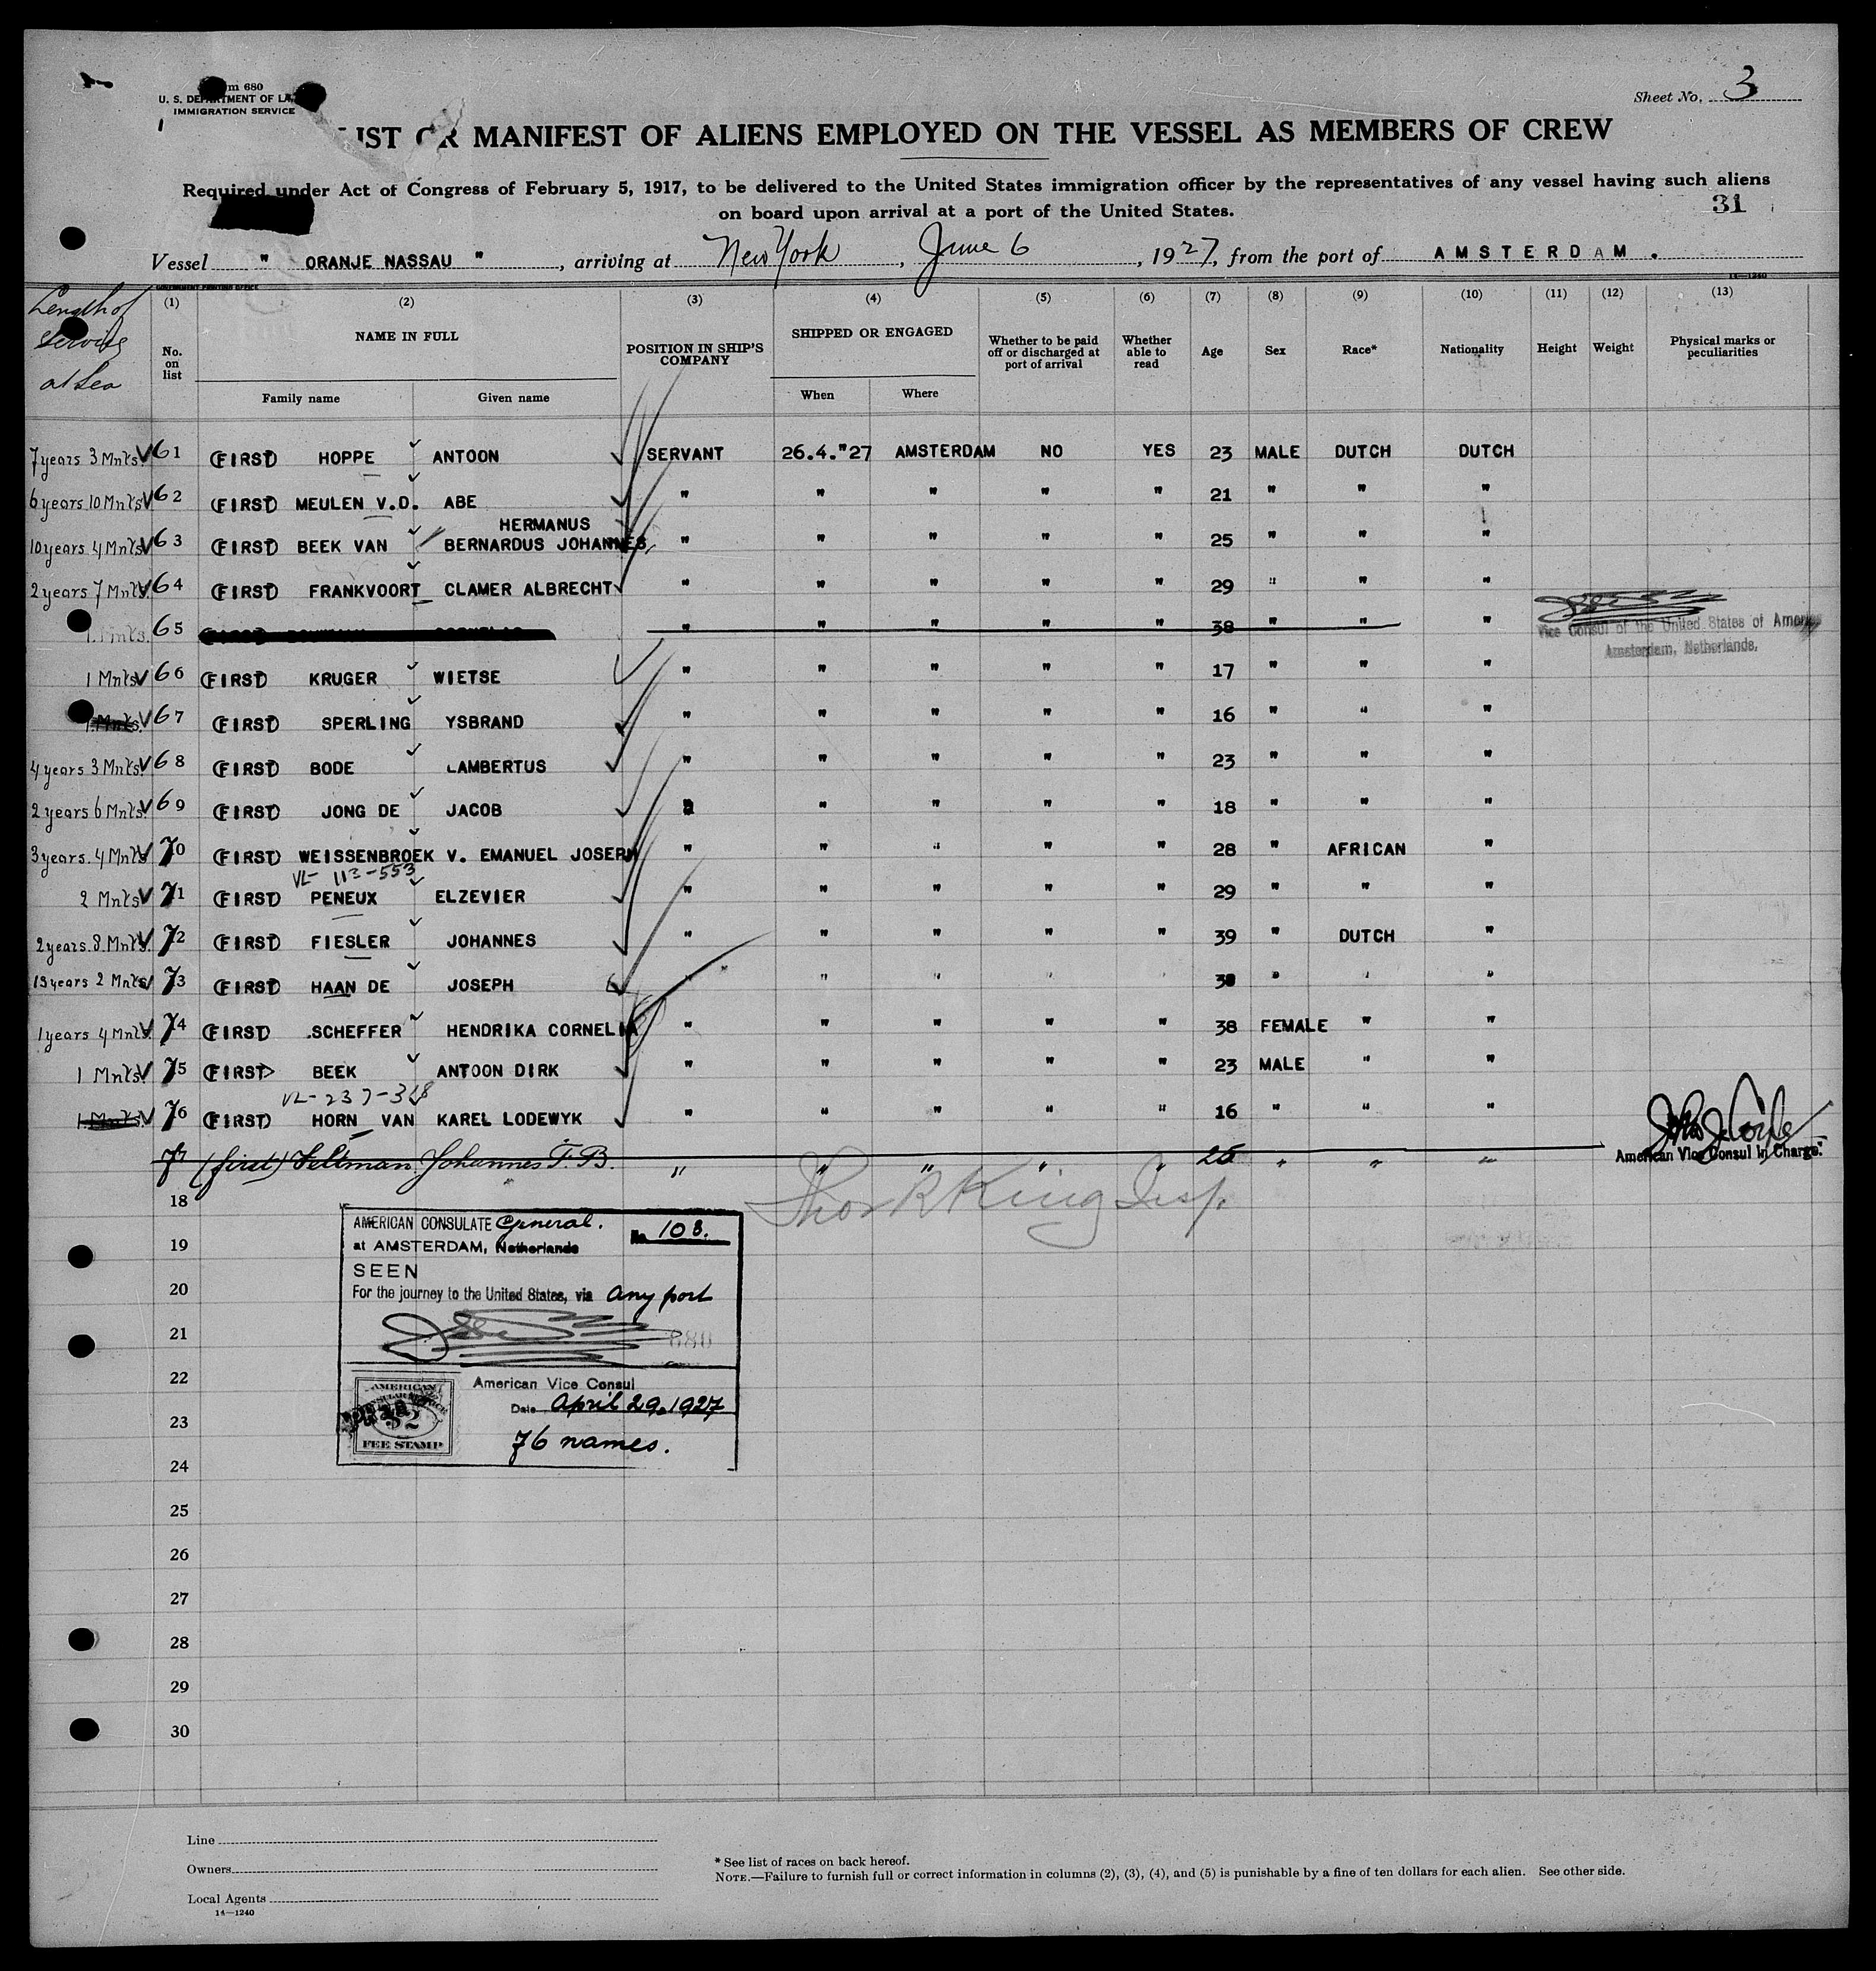 Sheet No. 3
U. S. DEPARTMENT OF
IMMIGRATION SERVICE
LIST OR MANIFEST OF ALIENS EMPLOYED ON THE VESSEL AS MEMBERS OF CREW
Required under Act of Congress of February 5, 1917, to be delivered to the United States immigration officer by the representatives of any vessel having such aliens
on board upon arrival at a port of the United States.
31
Vessel " ORANJE NASSAU ", arriving at New York, June 6, 1927, from the port of AMSTERDAM.
14—1240
GOVERNMENT PRINTING OFFICE
Length of service at Sea
(1) (2) (3) (4) (5) (6) (7) (8) (9) (10) (11) (12) (13)
No. on list NAME IN FULL POSITION IN SHIP'S COMPANY SHIPPED OR ENGAGED Whether to be paid off or discharged at port of arrival Whether able to read Age Sex Race* Nationality Height Weight Physical marks or peculiarities
Family name Given name When Where
7 years 3 Mnts. 61 (FIRST) HOPPE ANTOON SERVANT 26.4."27 AMSTERDAM NO YES 23 MALE DUTCH DUTCH
6 years 10 Mnts 62 (FIRST) MEULEN V.D. ABE " " " " " 21 " " "
HERMANUS
10 years 4 Mnts 63 (FIRST) BEEK VAN BERNARDUS JOHANNES " " " " " 25 " " "
2 years 7 Mnts. 64 (FIRST) FRANKVOORT CLAMER ALBRECHT " " " " " 29 " " "
65 " " " " " 38 " " "
Vice Consul of the United States of America
Amsterdam, Netherlands.
1 Mnts 66 (FIRST) KRUGER WIETSE " " " " " 17 " " "
1 Mnts. 67 (FIRST) SPERLING YSBRAND " " " " " 16 " " "
4 years 3 Mnts. 68 (FIRST) BODE LAMBERTUS " " " " " 23 " " "
2 years 6 Mnts. 69 (FIRST) JONG DE JACOB " " " " " 18 " " "
3 years. 4 Mnts 70 (FIRST) WEISSENBROEK V. EMANUEL JOSEPH " " " " " 28 " AFRICAN "
VL- 113-553
2 Mnts 71 (FIRST) PENEUX ELZEVIER " " " " " 29 " " "
2 years. 8 Mnts. 72 (FIRST) FIESLER JOHANNES " " " " " 39 " DUTCH "
13 years 2 Mnts 73 (FIRST) HAAN DE JOSEPH " " " " " " " "
1 years 4 Mnts 74 (FIRST) SCHEFFER HENDRIKA CORNELIA " " " " " 38 FEMALE " "
1 Mnts. 75 (FIRST) BEEK ANTOON DIRK " " " " " 23 MALE " "
VL-237-318
1 Mnts. 76 (FIRST) HORN VAN KAREL LODEWYK " " " " " 16 " " "
77 (first) Veltman Johannes T.B. " " " " " 25 " " "
American Vice Consul in Charge.
18
Thos R King Insp.
AMERICAN CONSULATE General. No. 108.
19
at AMSTERDAM, Netherlands
SEEN
20
For the journey to the United States, via any port
21
880
22
American Vice Consul
Date April 29, 1927
23
AMERICAN
$2
FEE STAMP
76 names.
24
25
26
27
28
29
30
Line
Owners
Local Agents
14—1240
* See list of races on back hereof.
NOTE.—Failure to furnish full or correct information in columns (2), (3), (4), and (5) is punishable by a fine of ten dollars for each alien. See other side.